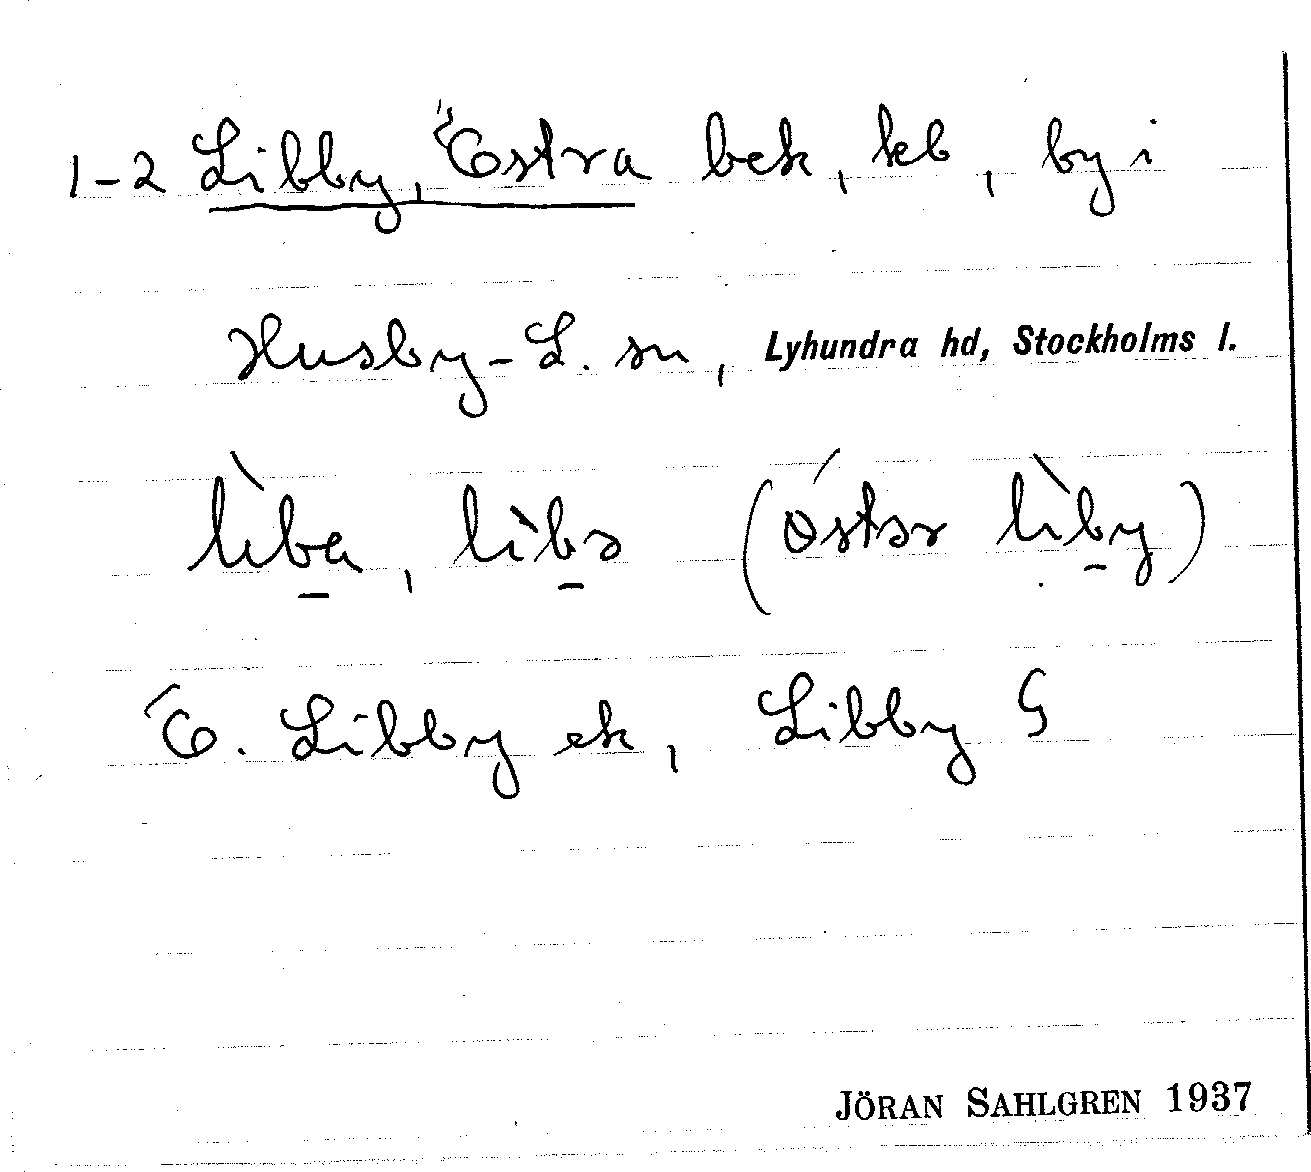 1-2 Libby, Östra bek, kb, by i
Husby-L. sn, Lyhundra hd, Stockholms l.
lìba, lìbə (ǿstər lìby)
Ö. Libby ek, Libby G
JÖRAN SAHLGREN 1937